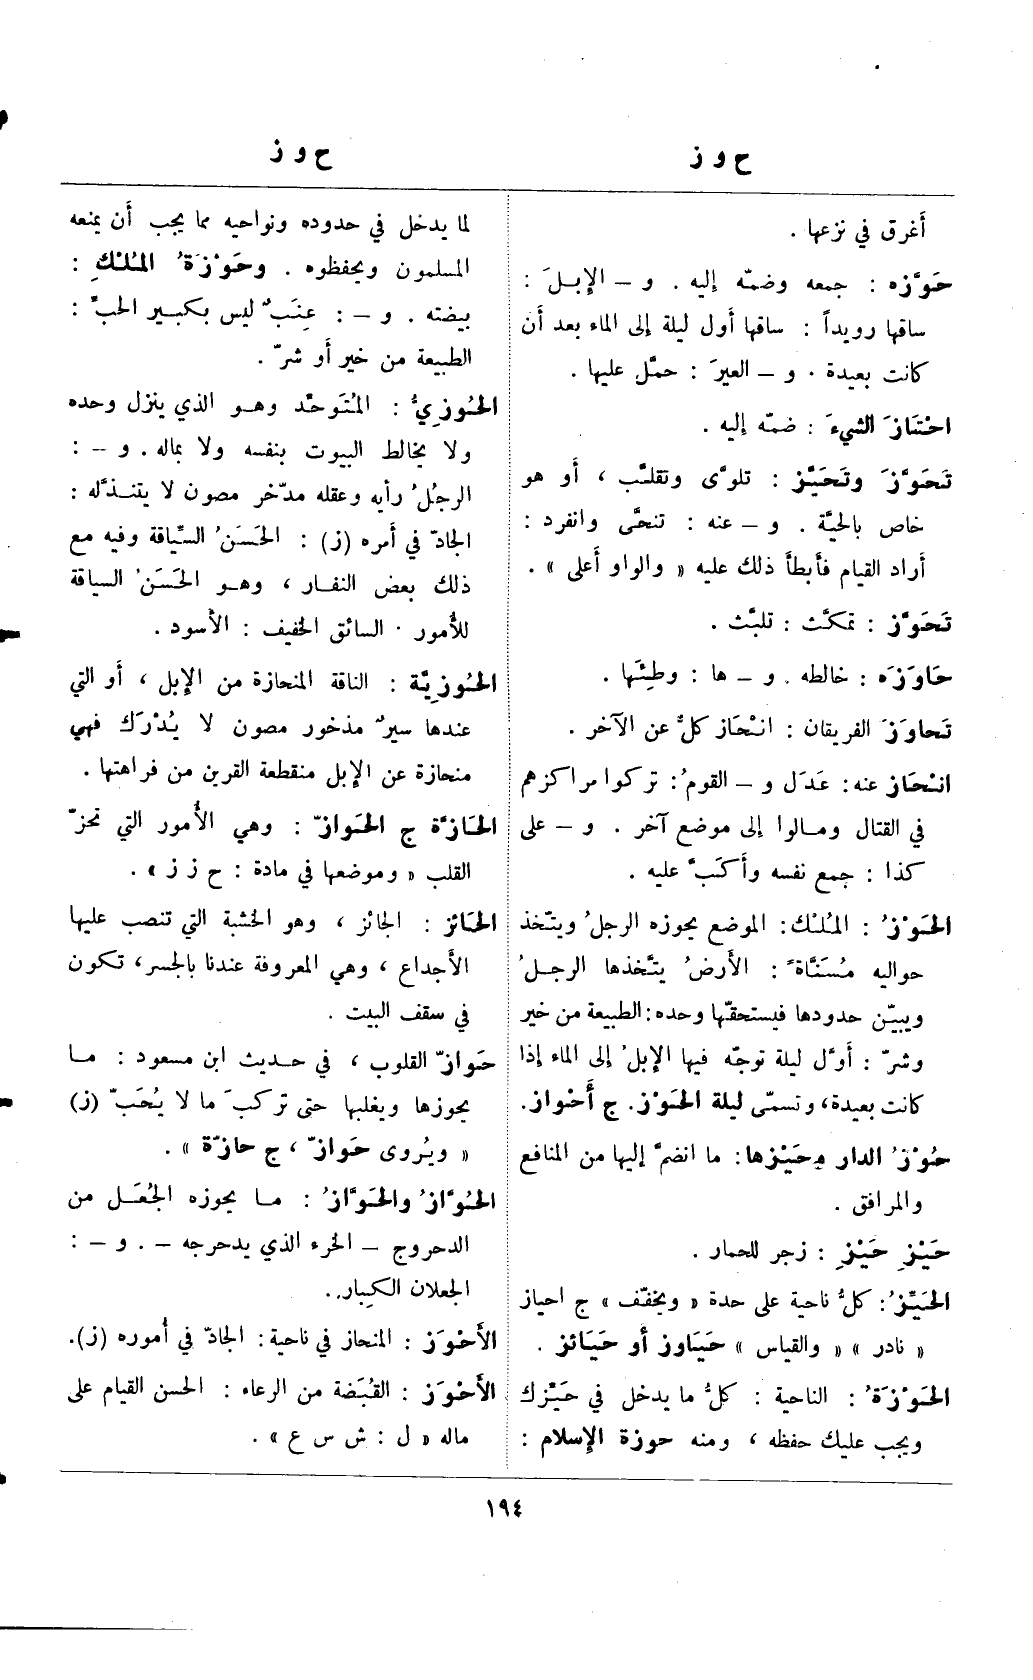 ح و ز
ح و ز
أغرق في نزعها .
حَوَّزه : جمعه وضمّه إليه . و — الإبـلَ :
ساقها رويداً : ساقها أول ليلة إلى الماء بعد أن
كانت بعيدة . و — العيرَ : حمَّل عليها .
احْتَازَ الشيءَ : ضمّه إليه .
تَحَوَّزَ وتَحَيَّز : تلوَّى وتقلّب ، أو هو
خاص بالحيَّة . و — عنه : تنحَّى وانفرد :
أراد القيام فأبطأ ذلك عليه « والواو أعلى » .
تَحَوَّز : تمكَّث : تلبَّث .
حَاوَزَه : خالطه . و — ها : وطِئَها .
تَحاوَزَ الفريقان : انْحَاز كلٌّ عن الآخر .
انْحَاز عنه : عَدَل و — القومُ : تركوا مراكزهم
في القتال ومـالوا إلى موضع آخر . و — على
كذا : جمع نفسه وأكَبَّ عليه .
الحَوْزُ : المُلْك : الموضع يحوزه الرجلُ ويتّخذ
حواليه مُسَنَّاةً : الأرضُ يتَّخذها الرجـلُ
ويبيّن حدودها فيستحقّها وحده : الطبيعة من خير
وشرّ : أوَّل ليلة توجّه فيها الإبلُ إلى الماء إذا
كانت بعيدة ، وتسمّى ليلة الحَوْز . ج أَحْواز .
حُوْزُ الدار وحَيْزها : ما انضمّ إليها من المنافع
والمرافق .
حَيْزِ حَيْزِ : زجر للحمار .
الحَيِّزُ : كلُّ ناحية على حدة « ويخفّف » ج احياز
« نادر » « والقياس » حَيَاوز أو حَيَائز .
الحَوْزَةُ : الناحية : كلُّ ما يدخل في حَيِّزك
ويجب عليك حفظه ، ومنه حوزة الإسلام :
لما يدخل في حدوده ونواحيه مما يجب أن يمنعه
المسلمون ويحفظوه . وحَوْزَةُ المُلْكِ :
بيضته . و — : عِنَبٌ ليس بكبير الحبِّ :
الطبيعة من خير أو شرّ .
الحُوزِيُّ : المُتَوحِّد وهـو الذي ينزل وحده
ولا يخالط البيوت بنفسه ولا بماله . و — :
الرجلُ رأيه وعقله مدّخر مصون لا يتبـذّله :
الجادّ في أمره (ز) : الحَسَنُ السِّياقة وفيه مع
ذلك بعض النفـار ، وهـو الحَسَنُ السياقة
للأُمور . السائق الخفيف : الأسود .
الحُوزِيَّة : الناقة المنحازة من الإبل ، أو التي
عندها سيرٌ مذخور مصون لا يُدْرَك فهي
منحازة عن الإبل منقطعة القرين من فراهتها .
الحَازَّة ج الحَوازّ : وهي الأُمور التي تحزّ
القلب « وموضعها في مادة : ح ز ز » .
الحَائز : الجائز ، وهو الخشبة التي تنصب عليها
الأجداع ، وهي المعروفة عندنا بالجسر ، تكون
في سقف البيت .
حَوازّ القلوب ، في حـديث ابن مسعود : مـا
يحوزها ويغلبها حتى تركبَ ما لا يُحَبّ (ز)
« ويُروى حَوازّ ، ج حازّة » .
الحُوَّازُ والحَوَّازُ : مـا يحوزه الجُعَـل من
الدحروج — الخرء الذي يدحرجه — . و — :
الجعلان الكِبار .
الأَحْوَز : المنحاز في ناحية : الجادّ في أموره (ز).
الأَحْوَز : القُبَضة من الرعاء : الحسن القيام على
ماله « ل : ش س ع » .
١٩٤